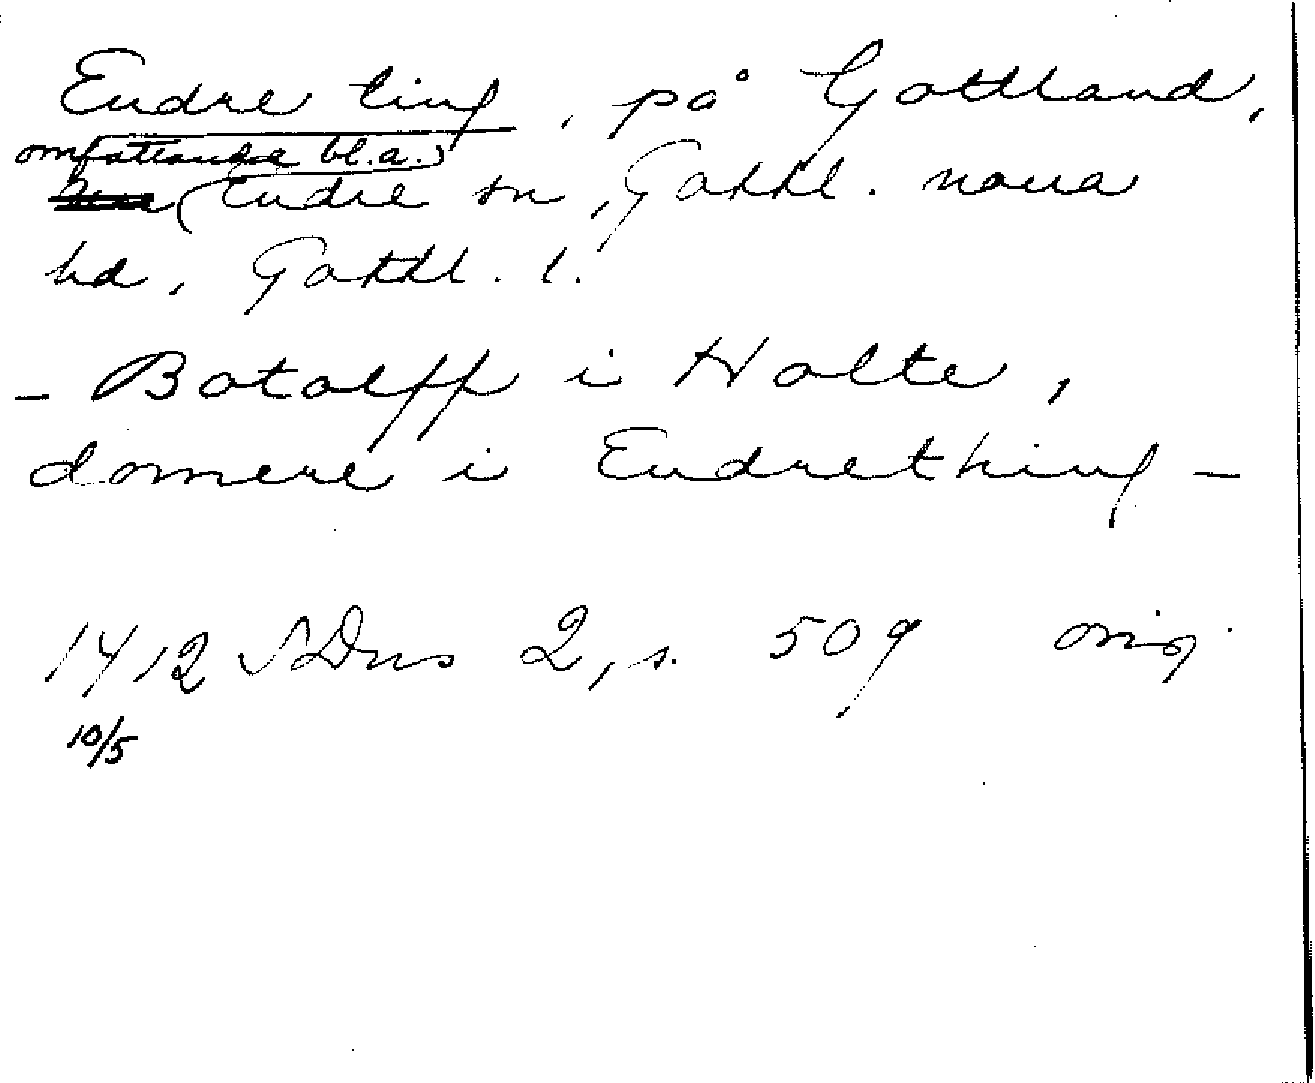 Endre ting, på Gottland,
omfattande bl.a.
Endre sn, Gottl. norra
hd, Gottl. l.
- Botolff i Holte,
domere i Endrething -
1412 SDns 2, s. 509 orig.
10/5